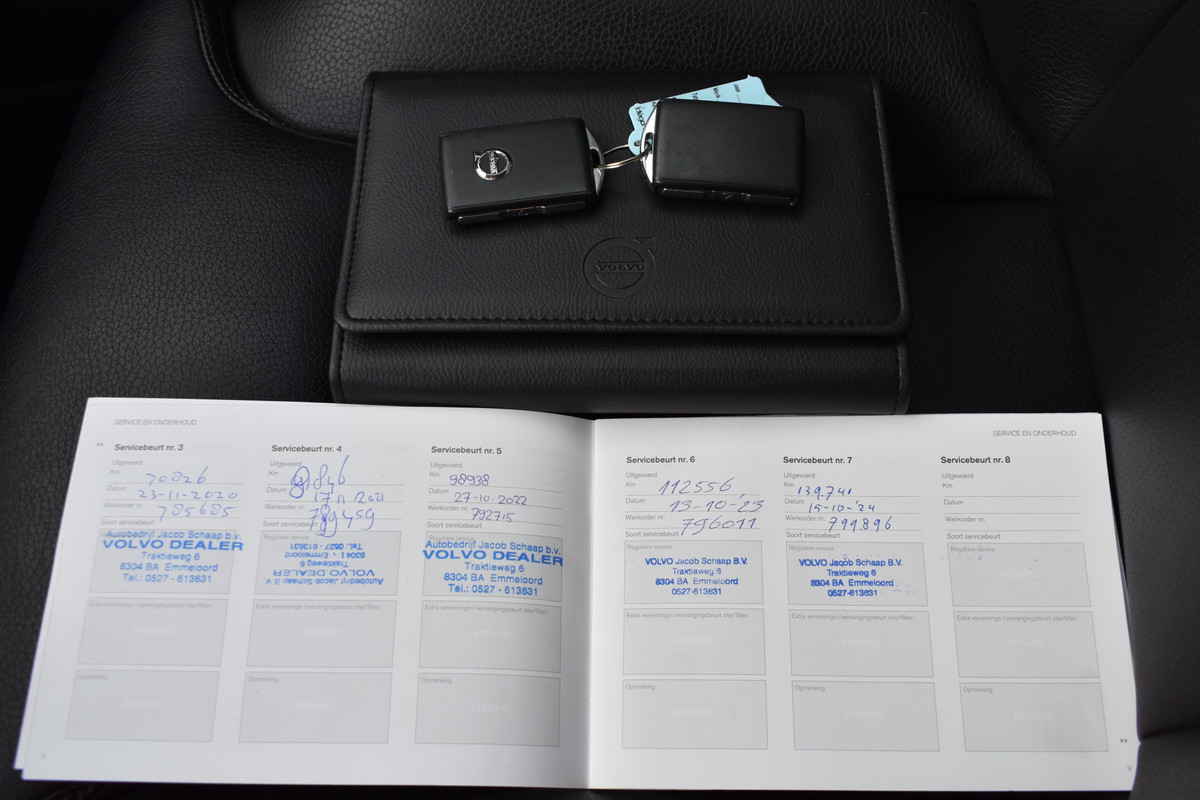 VOLVO
VOLVO
SERVICE EN ONDERHOUD
Servicebeurt nr. 3
Uitgevoerd
Km 70826
Datum 23-11-2020
Werkorder nr. 785685
Soort servicebeurt
Autobedrijf Jacob Schaap b.v.
VOLVO DEALER
Traktieweg 6
8304 BA Emmeloord
Tel.: 0527 - 613631
Extra verversings-/vervangingsbeurt olie/filter
Opmerking
Servicebeurt nr. 4
Uitgevoerd
Km
Datum 17 11 2021
Werkorder nr. 789459
Soort servicebeurt
Autobedrijf Jacob Schaap b.v.
VOLVO DEALER
Traktieweg 6
8304 BA Emmeloord
Tel.: 0527 - 613631
Extra verversings-/vervangingsbeurt olie/filter
STEMPEL
Opmerking
STEMPEL
Servicebeurt nr. 5
Uitgevoerd
Km 98938
Datum 27-10-2022
Werkorder nr. 792715
Soort servicebeurt
Autobedrijf Jacob Schaap b.v.
VOLVO DEALER
Traktieweg 6
8304 BA Emmeloord
Tel.: 0527 - 613631
Extra verversings-/vervangingsbeurt olie/filter
STEMPEL
Opmerking
STEMPEL
8
SERVICE EN ONDERHOUD
Servicebeurt nr. 6
Uitgevoerd
Km 112556
Datum 13-10-'23
Werkorder nr. 796011
Soort servicebeurt
Reguliere service
VOLVO Jacob Schaap B.V.
Traktieweg 6
8304 BA Emmeloord
0527-613631
Extra verversings-/vervangingsbeurt olie/filter
STEMPEL
Opmerking
STEMPEL
Servicebeurt nr. 7
Uitgevoerd
Km 139.741
Datum 15-10-'24
Werkorder nr. 799.896
Soort servicebeurt
Reguliere service
VOLVO Jacob Schaap B.V.
Traktieweg 6
8304 BA Emmeloord
0527-613631
Extra verversings-/vervangingsbeurt olie/filter
STEMPEL
Opmerking
STEMPEL
Servicebeurt nr. 8
Uitgevoerd
Km
Datum
Werkorder nr.
Soort servicebeurt
Reguliere service
STEMPEL
Extra verversings-/vervangingsbeurt olie/filter
STEMPEL
Opmerking
STEMPEL
9